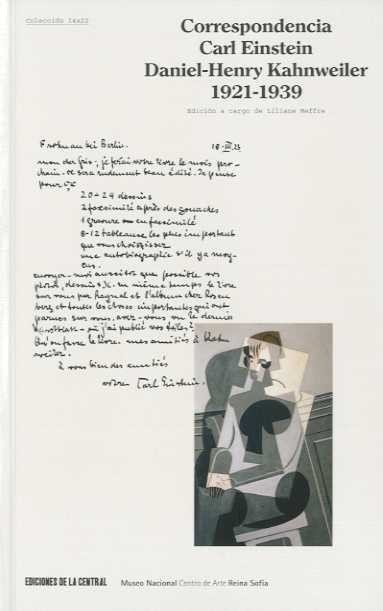 Colección 14x22
Correspondencia
Carl Einstein
Daniel-Henry Kahnweiler
1921-1939
Edición a cargo de Liliane Meffre
Frohnau bei Berlin. 18-III.23
mon cher Gris, je ferai votre livre le mois pro-
chain. ce sera rudement beau édité. Je pense
pour
20-24 dessins
2 facsimilé après des gouaches
1 gravure en facsimilé
8-12 tableaux les plus important
que vous choisissez
une autobiographie s'il y a moy-
en.
envoyez-moi aussitot que possible vos
photos, dessins etc. en même temps le livre
sur vous par Raynal et l'album chez Rosen
berg et toutes les choses importantes qui ont
parues sur vous. avez-vous vu le dernier
où j'ai publié vos toiles?
faire le livre. mes amitiés à
à vous bien des amitiés
votre Carl Einstein.
EDICIONES DE LA CENTRAL
Museo Nacional Centro de Arte Reina Sofía